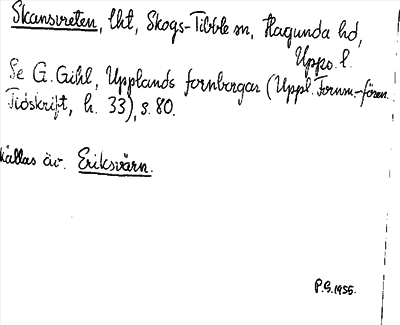 Skansvreten, lht, Skogs-Tibble sn, Hagunda hd,
Upps. l.
Se G. Gihl, Upplands fornborgar (Uppl. Fornm.-fören.
Tidskrift, h. 33), s. 80.
Kallas äv. Eriksvärn.
P.G. 1955.